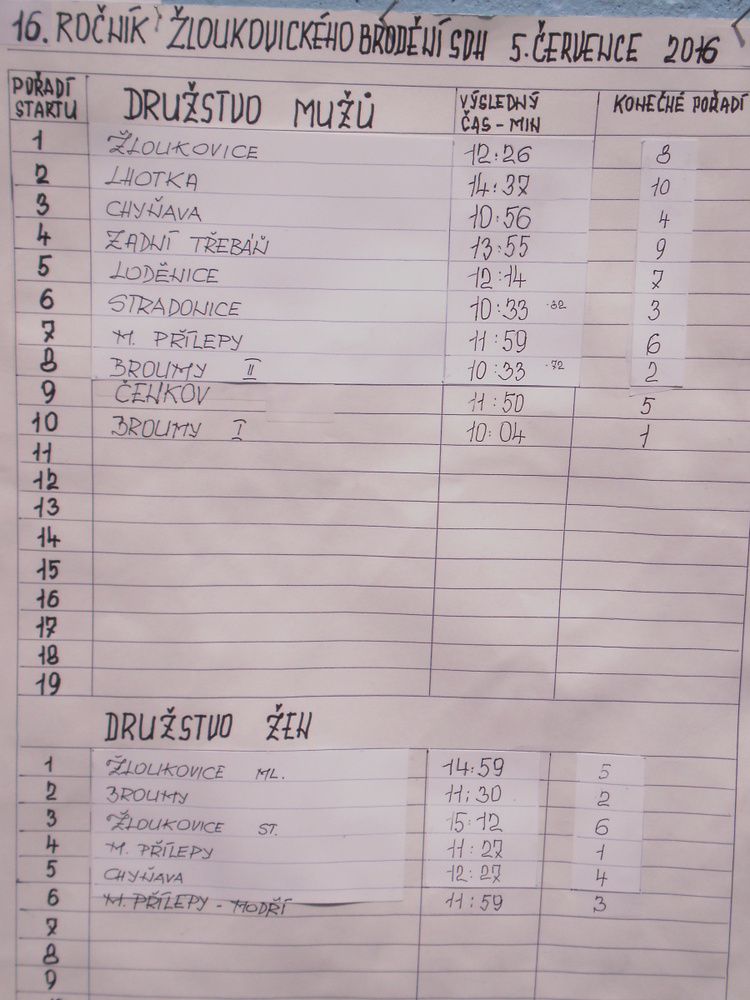 16. ROČNÍK ŽLOUKOVICKÉHO BRODĚNÍ SDH 5. ČERVENCE 2016
POŘADÍ STARTU DRUŽSTVO MUŽŮ VÝSLEDNÝ ČAS - MIN KONEČNÉ POŘADÍ
1 ŽLOUKOVICE 12:26 8
2 LHOTKA 14:37 10
3 CHYŇAVA 10:56 4
4 ZADNÍ TŘEBÁŇ 13:55 9
5 LODĚNICE 12:14 7
6 STRADONICE 10:33 .82 3
7 M. PŘÍLEPY 11:59 6
8 BROUMY II 10:33 .72 2
9 ČENKOV 11:50 5
10 BROUMY I 10:04 1
11
12
13
14
15
16
17
18
19
DRUŽSTVO ŽEN
1 ŽLOUKOVICE ML. 14:59 5
2 BROUMY 11:30 2
3 ŽLOUKOVICE ST. 15:12 6
4 M. PŘÍLEPY 11:27 1
5 CHYŇAVA 12:27 4
6 M. PŘÍLEPY - MODŘÍ 11:59 3
7
8
9